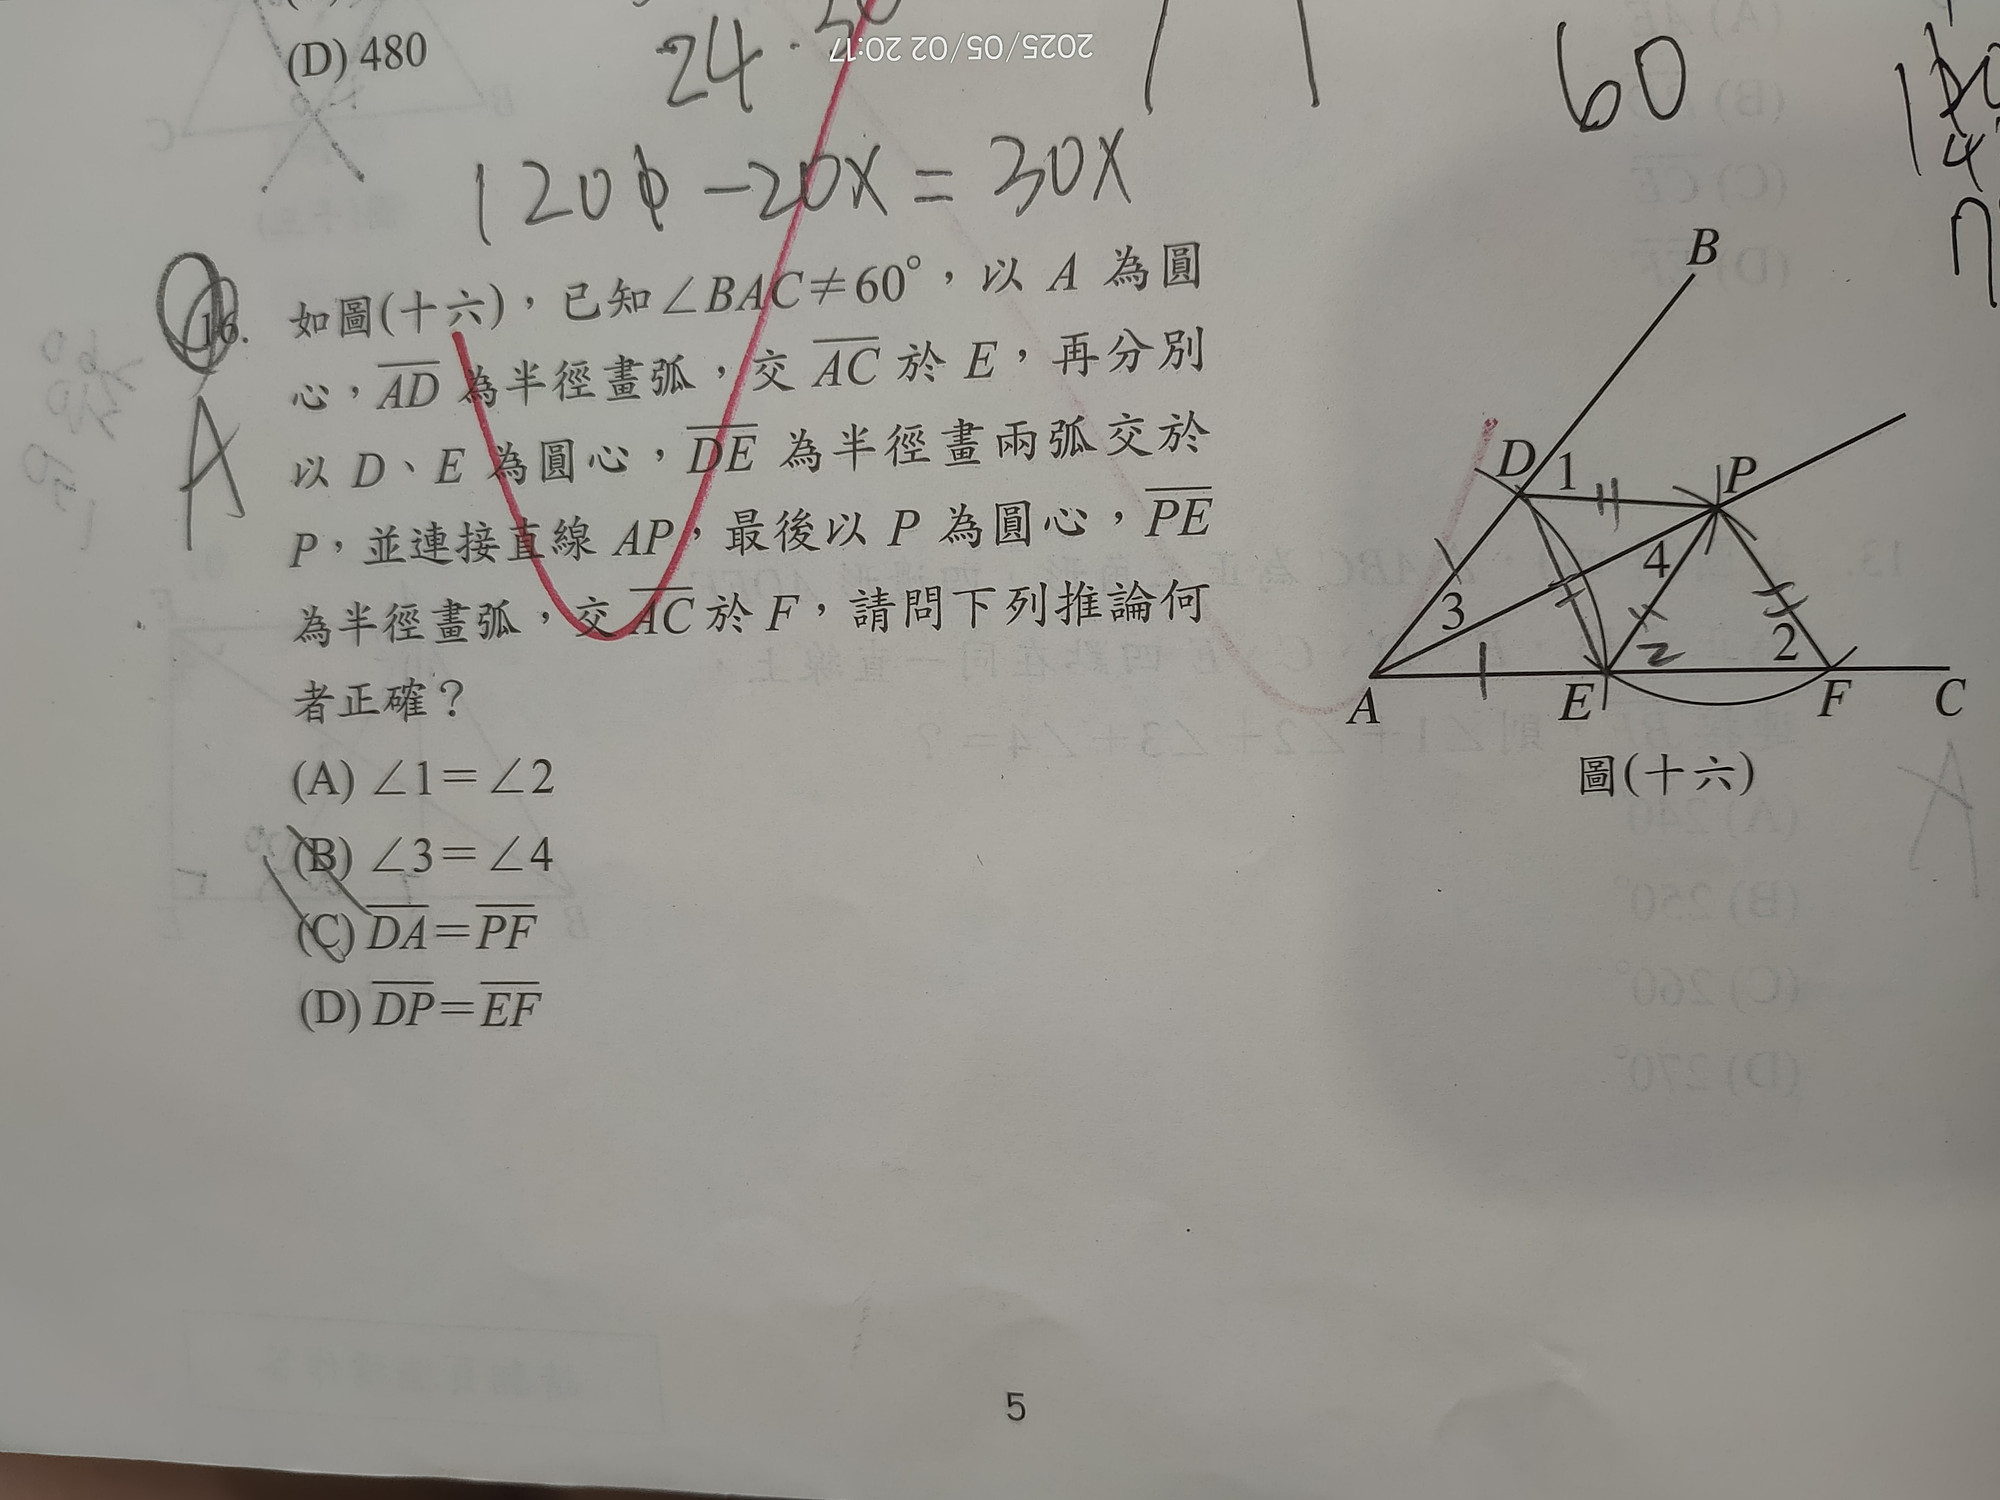 (D) 480
24.
2025/05/02 20:17
60
120 - 20X = 30X
16. 如圖(十六),已知∠BAC≠60°,以 A 為圓
心,AD 為半徑畫弧,交 AC 於 E,再分別
以 D、E 為圓心,DE 為半徑畫兩弧交於
P,並連接直線 AP,最後以 P 為圓心,PE
為半徑畫弧,交 AC 於 F,請問下列推論何
者正確?
A
(A) ∠1=∠2
(B) ∠3=∠4
(C) DA=PF
(D) DP=EF
B
D 1 P
4
3
2 2
A E F C
圖(十六)
5